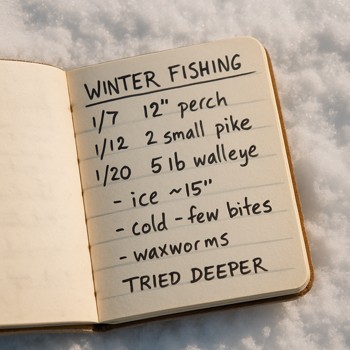 WINTER FISHING
1/7 12" perch
1/12 2 small pike
1/20 5 lb walleye
- ice ~15"
- cold - few bites
- waxworms
TRIED DEEPER